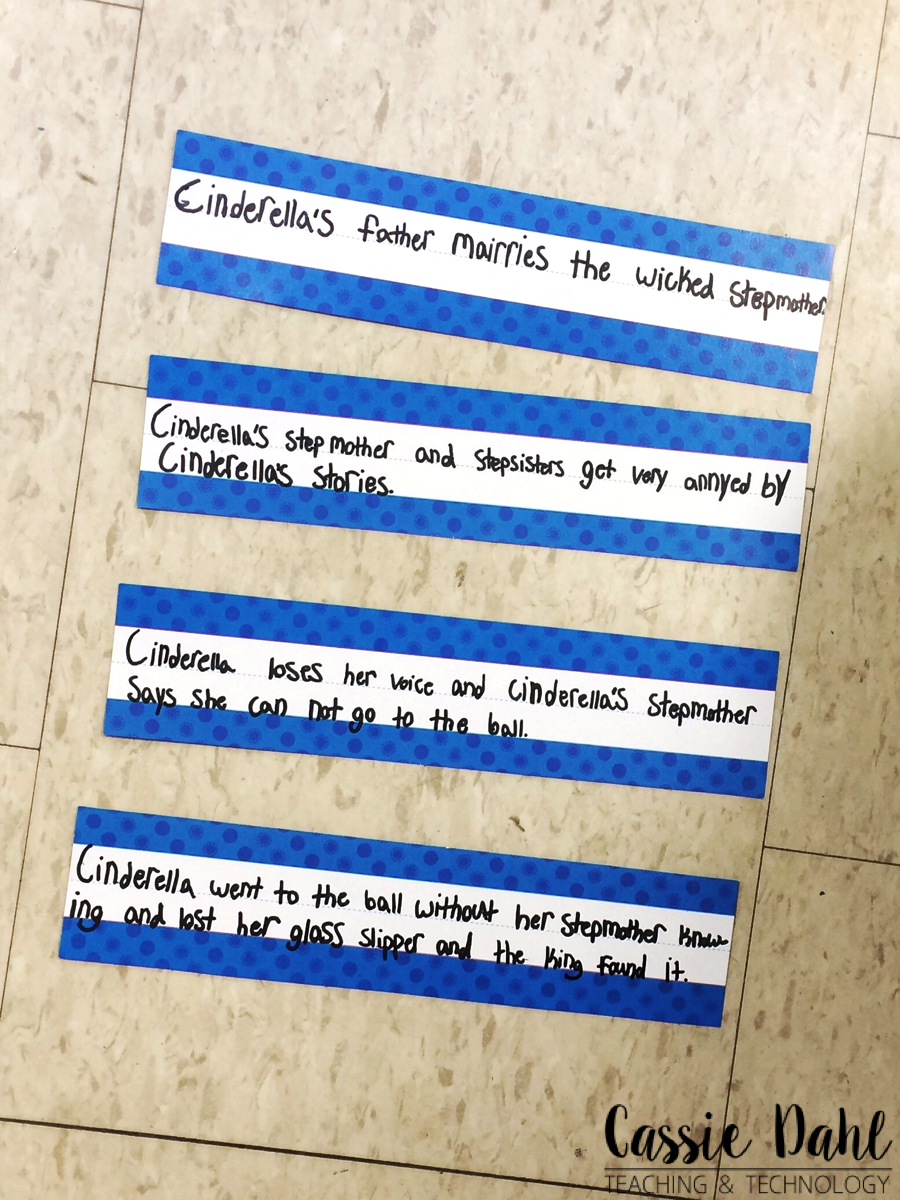 Cinderella's father mairries the wicked stepmother.
Cinderella's stepmother and stepsisters get very annyed by
Cinderella's stories.
Cinderella loses her voice and Cinderella's stepmother
says she can not go to the ball.
Cinderella went to the ball without her stepmother know-
ing and lost her glass slipper and the king found it.
Cassie Dahl
TEACHING & TECHNOLOGY